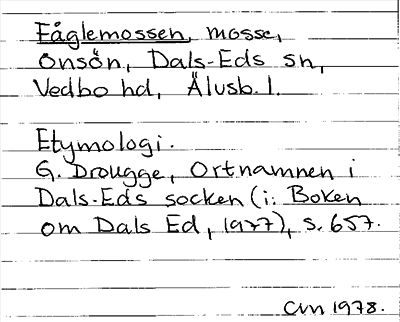 Fåglemossen, mosse,
Onsön, Dals-Eds sn,
Vedbo hd, Älvsb. l.
Etymologi.
G. Drougge, Ortnamnen i
Dals-Eds socken (i: Boken
om Dals Ed, 1977), s. 657.
1978.